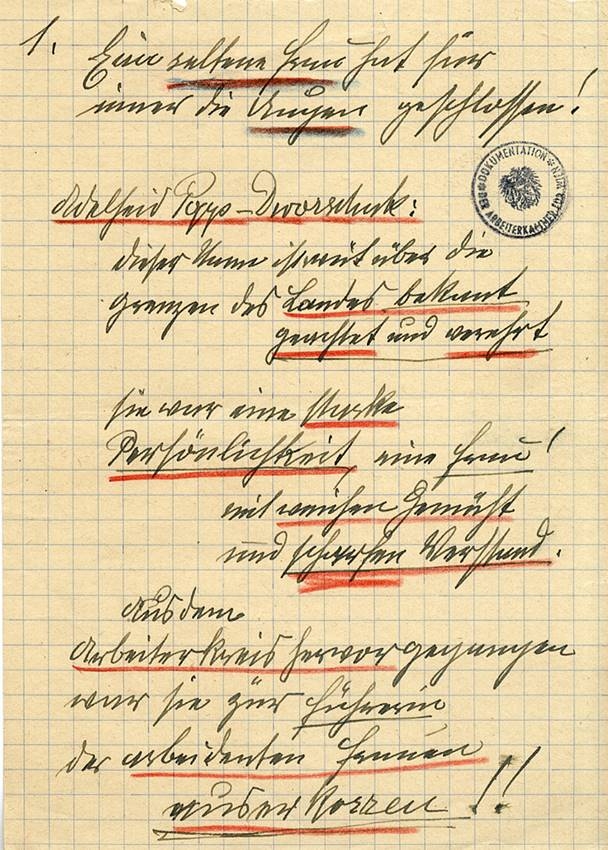 1. Eine seltene Frau hat für
immer die Augen geschlossen!
DOKUMENTATION * NJUM * DER ARBEITERKAMMER FÜR
Adelheid Popp-Dworschak:
dieser Name ist weit über die
grenzen des Landes bekant
geachtet und verehrt
sie war eine starke
Persönlichkeit, eine Frau!
mit weichen Gemüht
und scharfen Verstand.
Aus dem
Arbeiterkreis hervorgegangen
war sie zur Führerin
der arbeidenten Frauen
auserkorren!!